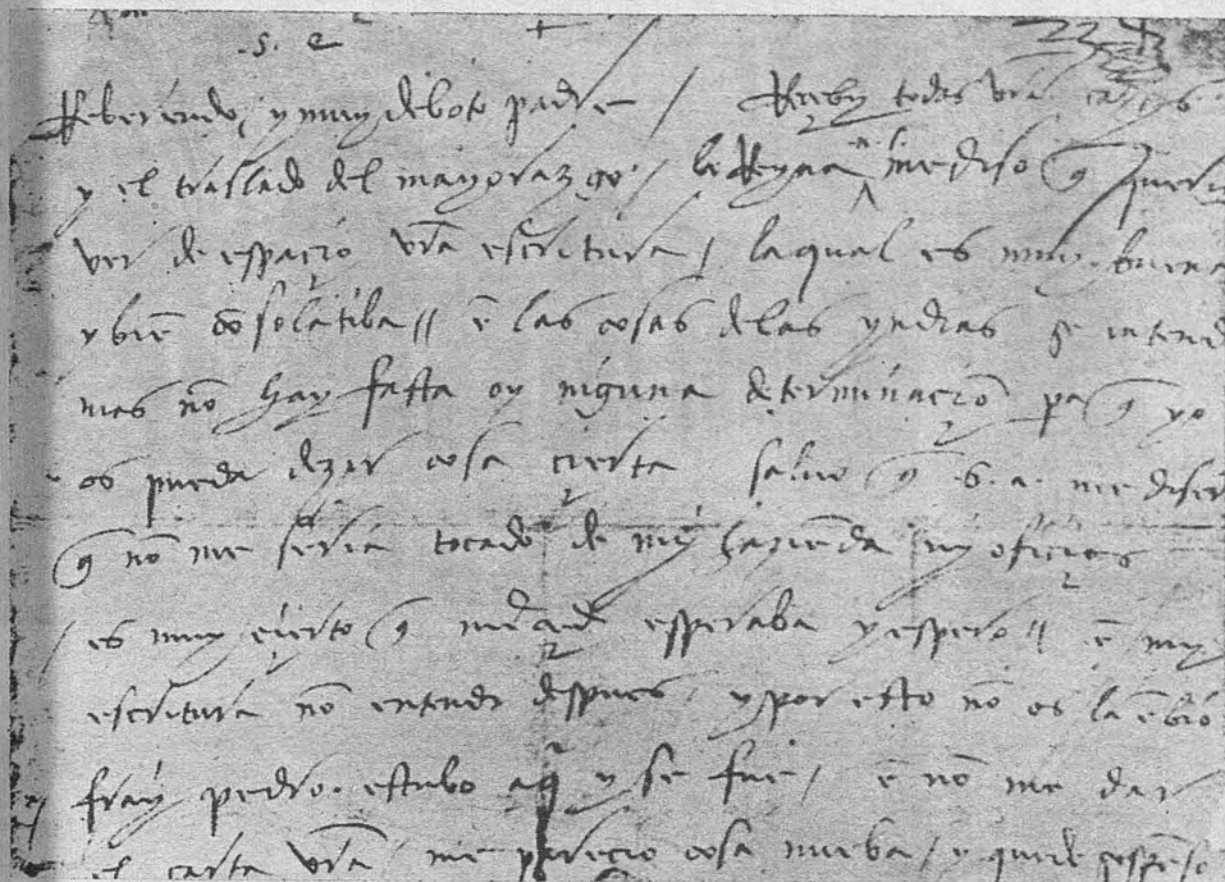 .s. e
Reberendo y muy deboto padre / Reçeby todas vras cartas
y el traslado del mayorazgo / la Reyna n. s. me diso q queri
ver de espacio vra escritura / la qual es muy buena
y biē cōsolatiba // ē las cosas de las yndias se intend
mas nō hay fasta oy niguna determinaciō pa q yo
os pueda dezir cosa çierta salvo q s. a. me diser
q nō me seria tocado de my hazienda ny ofiçios
/ es muy çierto q esperaba y espero // ē my
escritura nō entendi despues y por esto nō os la ēbio
fray pedro estubo aq y se fue / e nō me dar
el carta vra / me pareçio cosa nueba / y quede sospēso